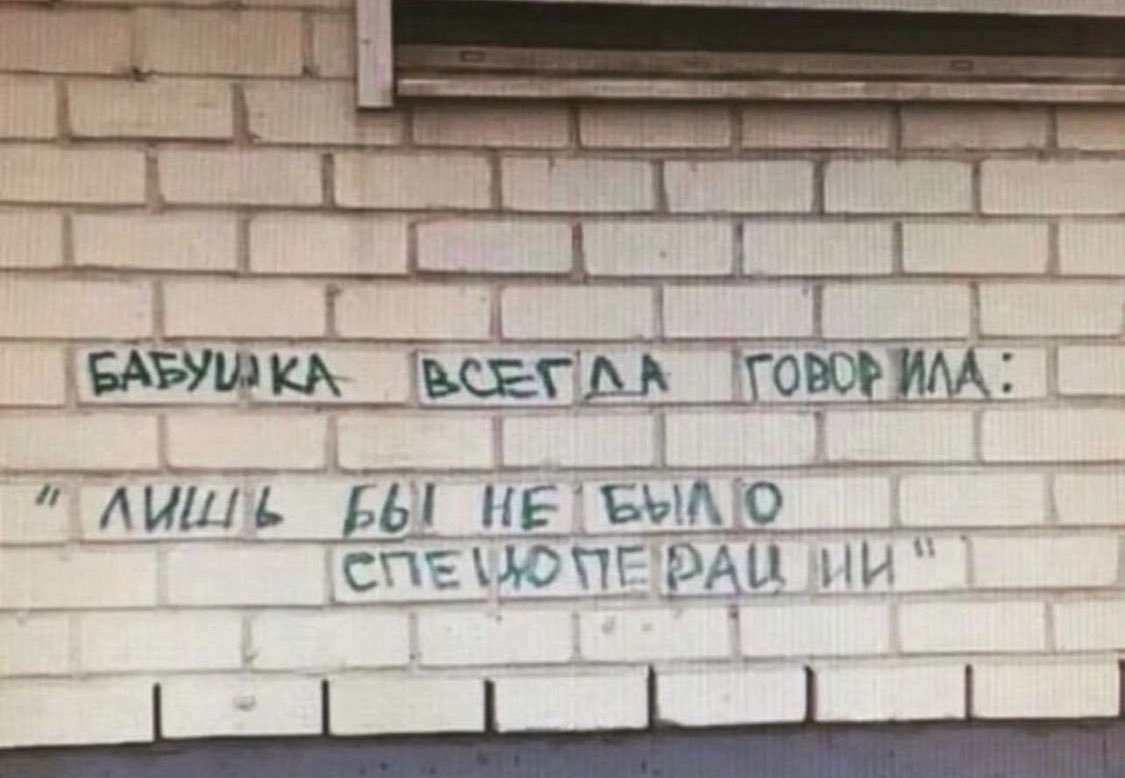 БАБУШКА ВСЕГДА ГОВОРИЛА:
"ЛИШЬ БЫ НЕ БЫЛО
СПЕЦОПЕРАЦИИ"